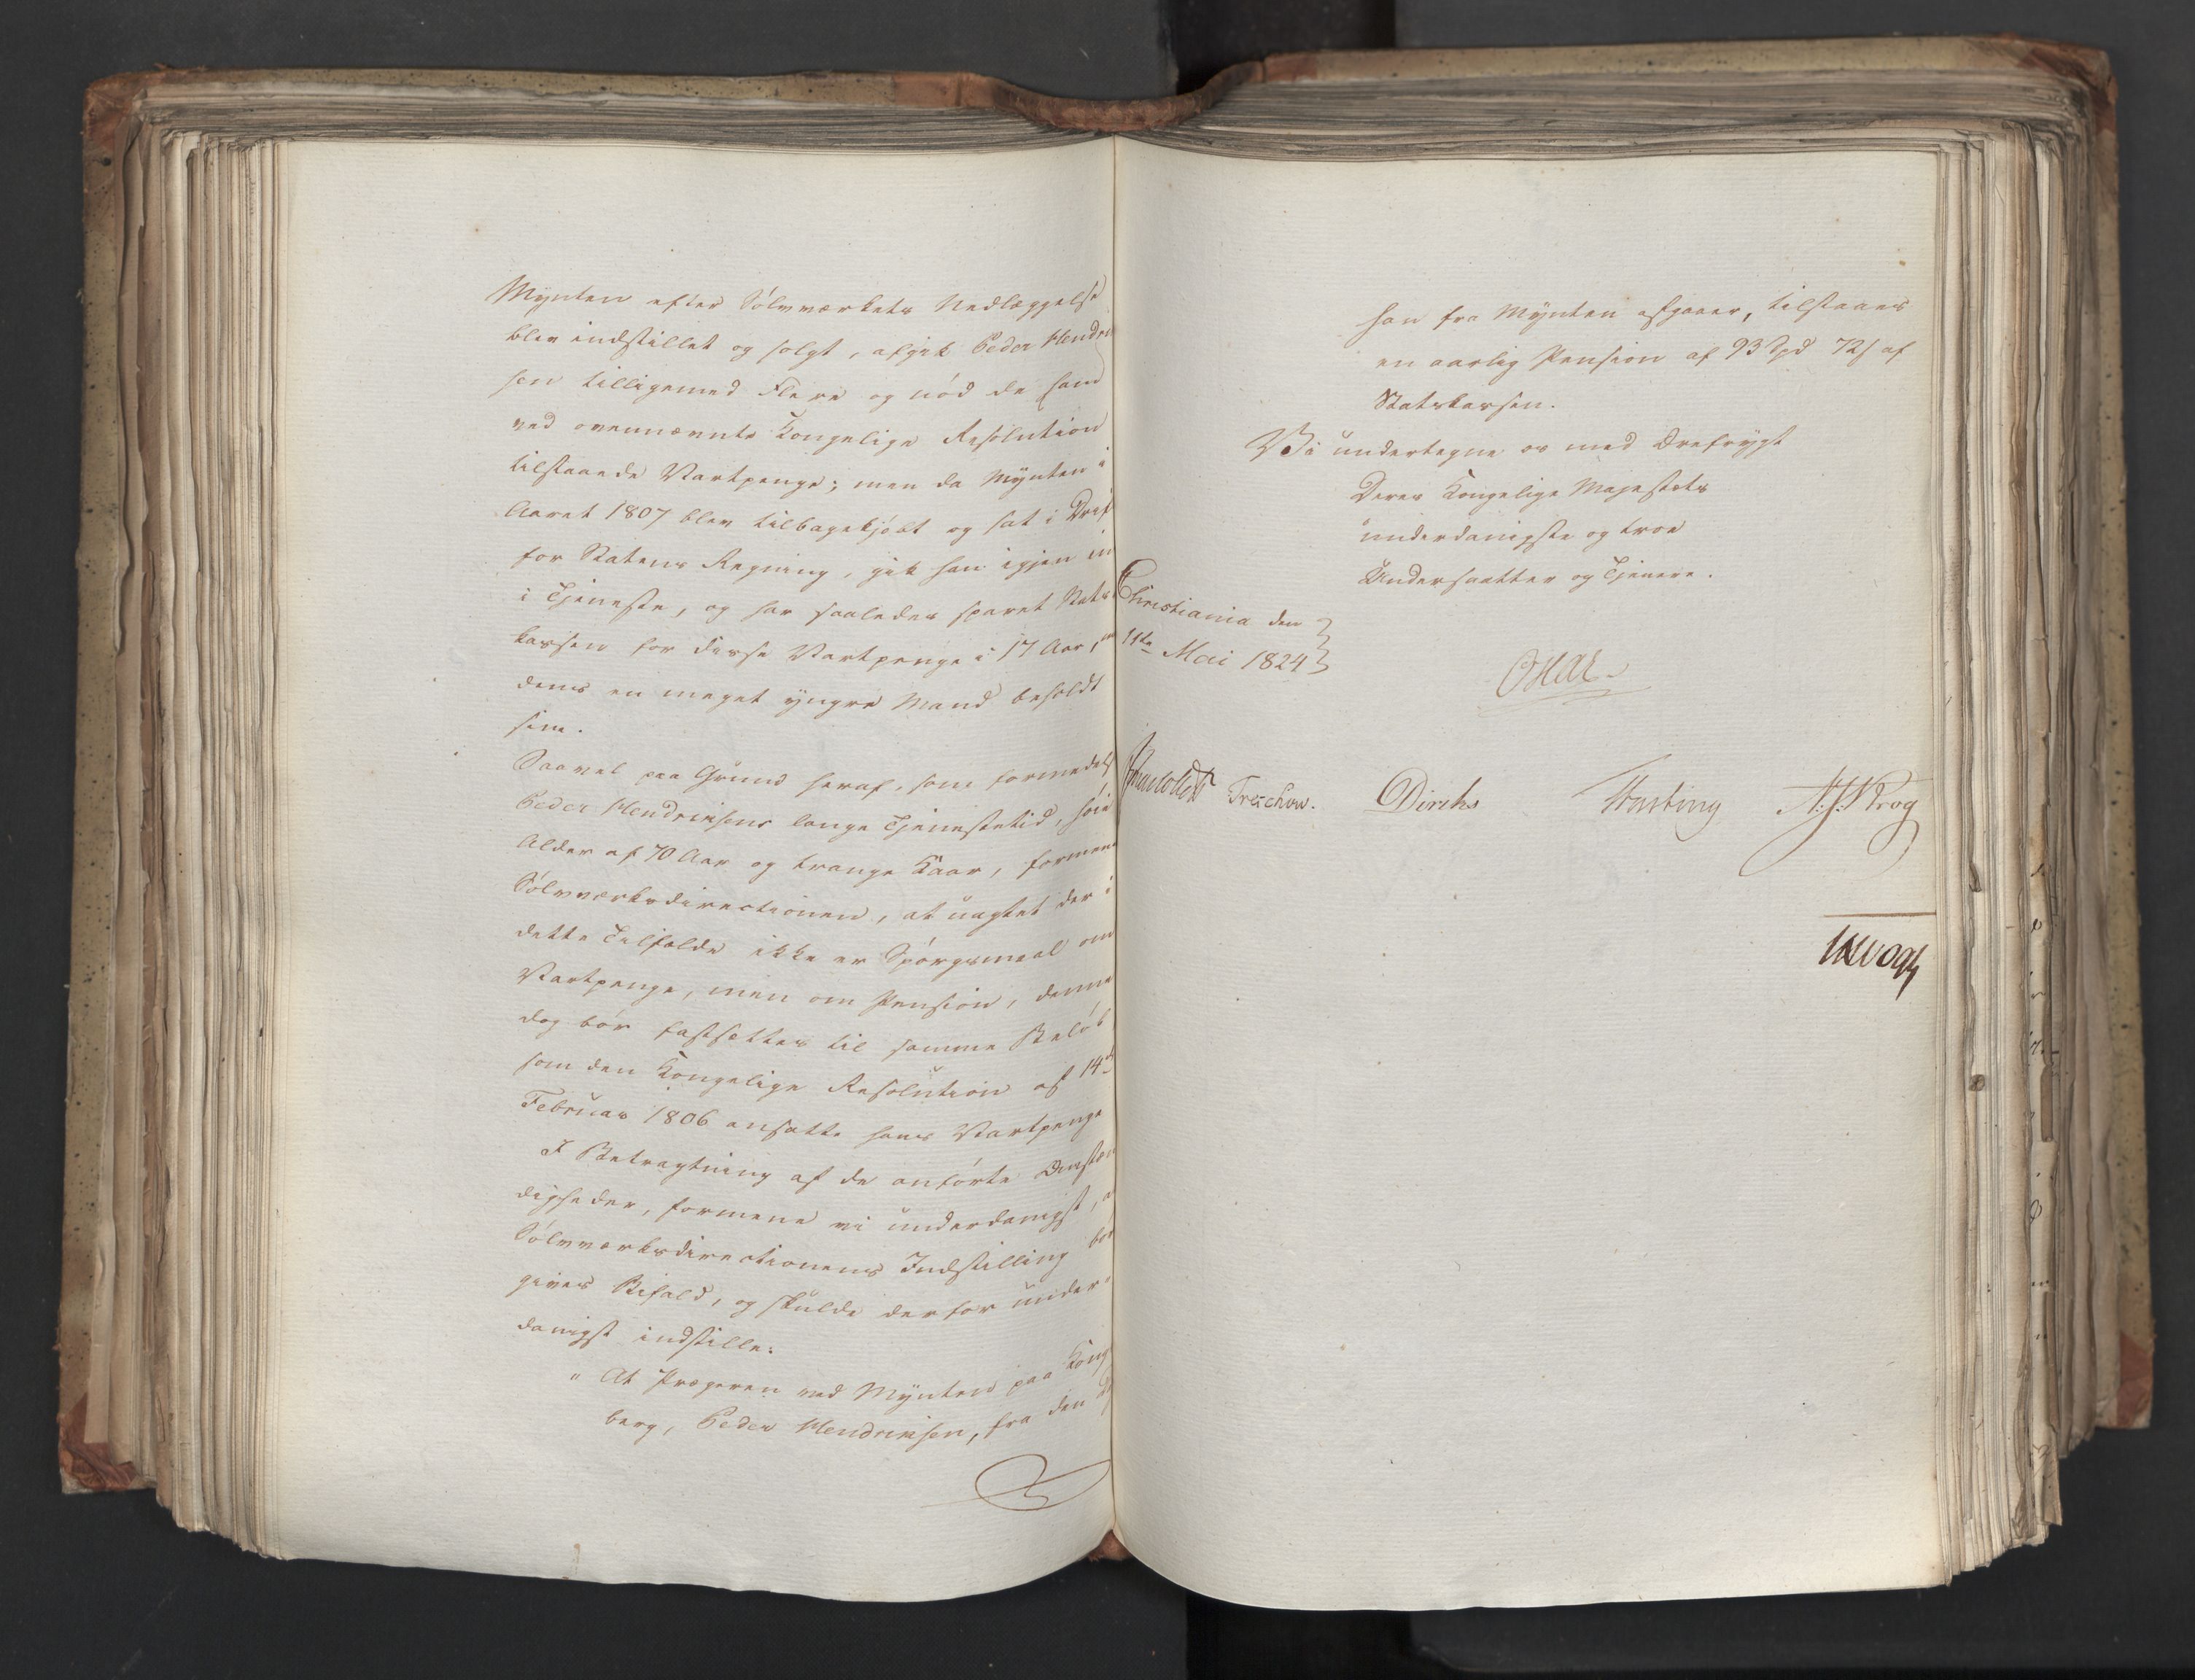 Mynten efter Sølvværkets Nedlæggelse
blev indstillet og solgt, afgik Peder Hendri
sen tilligemed Flere og nød de ham
ved ovennævnte Kongelige Resolution
tilstaaede Vartpenge; men da Mynten i
Aaret 1807 blev tilbagekjøbt og sat i Drif
for Statens Regning, gik han igjen in
i Tjeneste, og har saaledes sparet Stats
kassen for disse Vartpenge i 17 Aar,
dens en meget yngre Mand beholdt
sin.
Saavel paa Grund heraf, som formedelst
Peder Hendriksens lange Tjenestetid, høie
Alder af 70 Aar og trange Kaar, formene
Sølvværksdirectionen, at uagtet der i
dette Tilfælde ikke er Spørgsmaal om
Vartpenge, men om Pension, denne
dog bør fastsættes til samme Beløb
som den Kongelige Resolution af 14de
Februar 1806 ansatte hans Vartpenge
I Betragtning af de anførte Omstæn
digheder, formene vi underdanigst, a
Sølvværksdirectionens Indstilling bør
gives Bifald, og skulde derfor under-
danigst indstille:
" At Prægeren ved Mynten paa Kongs
berg, Peder Hendriksen, fra den
han fra Mynten afgaaer, tilstaaes
en aarlig Pension af 93 Spd 72 s af
Statskassen.
Vi undertegne os med Ærefrygt
Deres Kongelige Majestets
underdanigste og troe
Undersaatter og Tjenere.
Christiania den
11te Mai 1824
Oscar.
Treschow. Diriks Fasting A:J:Krog
Vogt